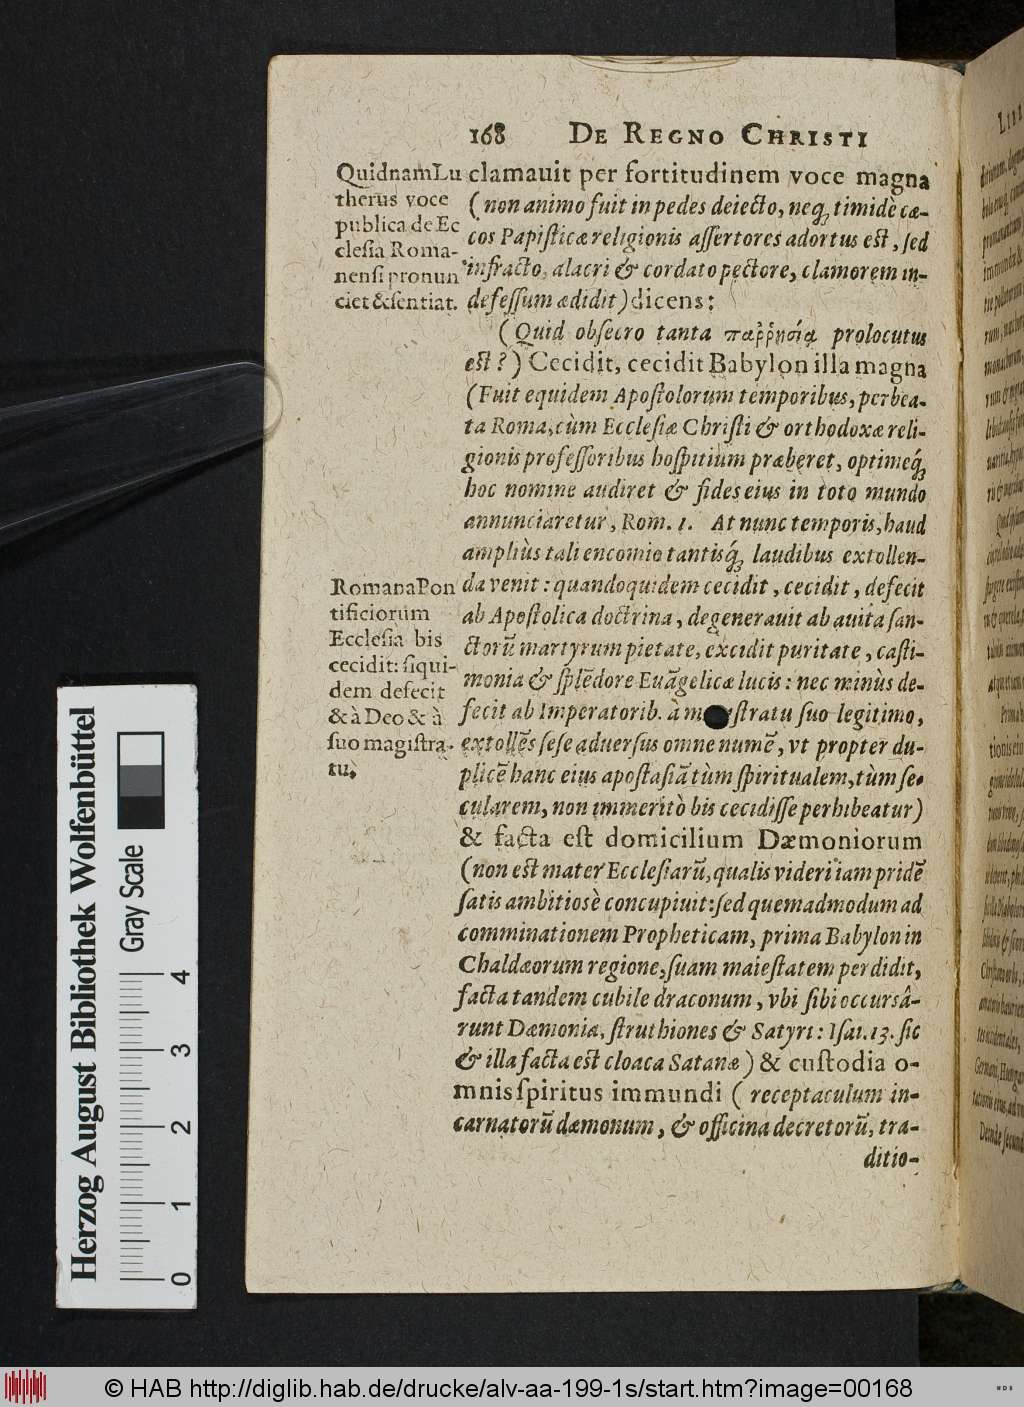 168 DE REGNO CHRISTI
QuidnamLu
therus voce
publica de Ec
clesia Roma-
nensi pronun
ciet &sentiat.
clamauit per fortitudinem voce magna
(non animo fuit in pedes deiecto, neq́ue timidè cæ-
cos Papisticæ religionis assertores adortus est, sed
infracto, alacri & cordato pectore, clamorem in-
defessum ædidit) dicens:
(Quid obsecro tanta παῤῥησίᾳ prolocutus
est?) Cecidit, cecidit Babylon illa magna
(Fuit equidem Apostolorum temporibus, perbea-
ta Roma, cùm Ecclesiæ Christi & orthodoxæ reli-
gionis professoribus hospitium præberet, optimeq́ue
hoc nomine audiret & fides eius in toto mundo
annunciaretur, Rom. 1. At nunc temporis, haud
ampliùs tali encomio tantisq́ue laudibus extollen-
RomanaPon
tificiorum
Ecclesia bis
cecidit: siqui-
dem defecit
& à Deo & à
suo magistra-
tu.
da venit: quandoquidem cecidit, cecidit, defecit
ab Apostolica doctrina, degenerauit ab auita san-
ctorũ martyrum pietate, excidit puritate, casti-
monia & splẽdore Euãgelicæ lucis: nec minùs de-
fecit ab Imperatorib. à stratu suo legitimo,
extollẽs sese aduersus omne numẽ, vt propter du-
plicẽ hanc eius apostasiã tùm spiritualem, tùm se-
cularem, non immeritò bis cecidisse perhibeatur)
& facta est domicilium Dæmoniorum
(non est mater Ecclesiarũ, qualis videri iam pridẽ
satis ambitiosè concupiuit: sed quemadmodum ad
comminationem Propheticam, prima Babylon in
Chaldæorum regione, suam maiestatem perdidit,
facta tandem cubile draconum, vbi sibi occursâ-
runt Dæmonia, struthiones & Satyri: Isai. 13. sic
& illa facta est cloaca Satanæ) & custodia o-
mnis spiritus immundi (receptaculum in-
carnatorũ dæmonum, & officina decretorũ, tra-
ditio-
Herzog August Bibliothek Wolfenbüttel
Gray Scale
0 1 2 3 4
© HAB http://diglib.hab.de/drucke/alv-aa-199-1s/start.htm?image=00168